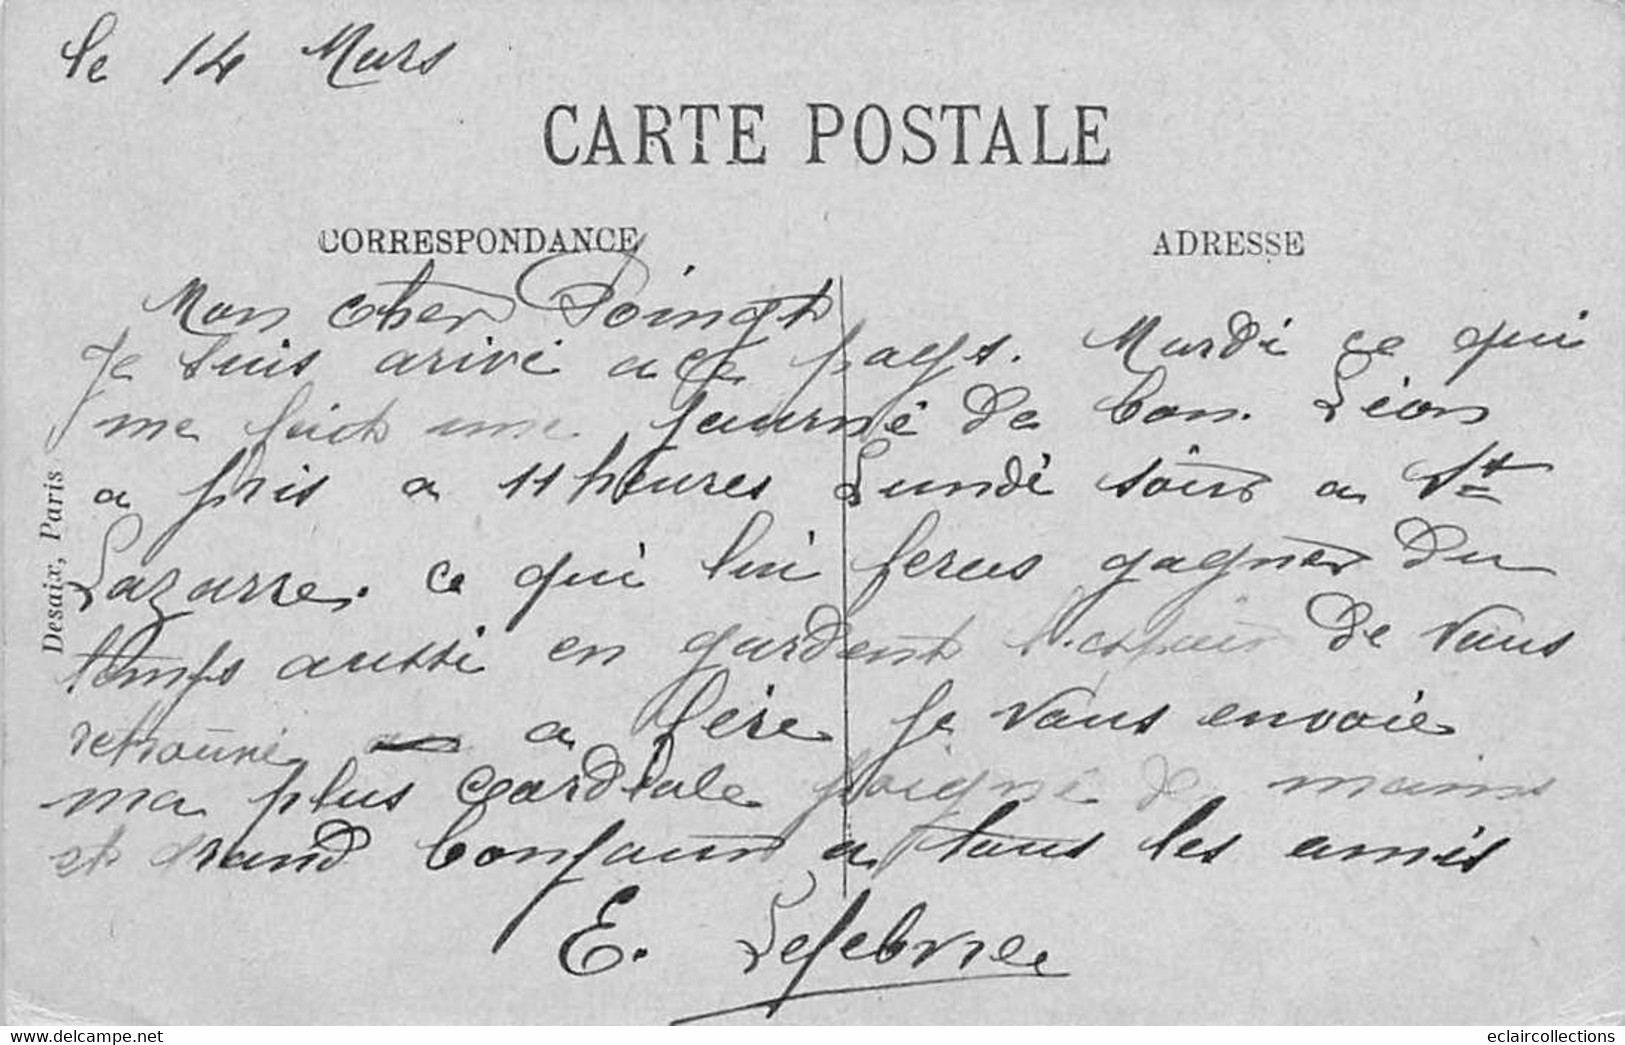 le 14 Mars
CARTE POSTALE
CORRESPONDANCE
ADRESSE
Mon cher Poingt
Je suis arivé a ce pays. Mardi ce qui
me fait une journé de bon. Léon
a pris a 11 heures Lundi soir a St
Lazarre. ce qui lui feras gagner du
temps aussi en gardent l'espoir de vous
retrouvé a fère je vous envoie
ma plus cordiale poigné de mains
et grand bonjour a tous les amis
E. Lefebvre
Desaix, Paris
www.delcampe.net
eclaircollections